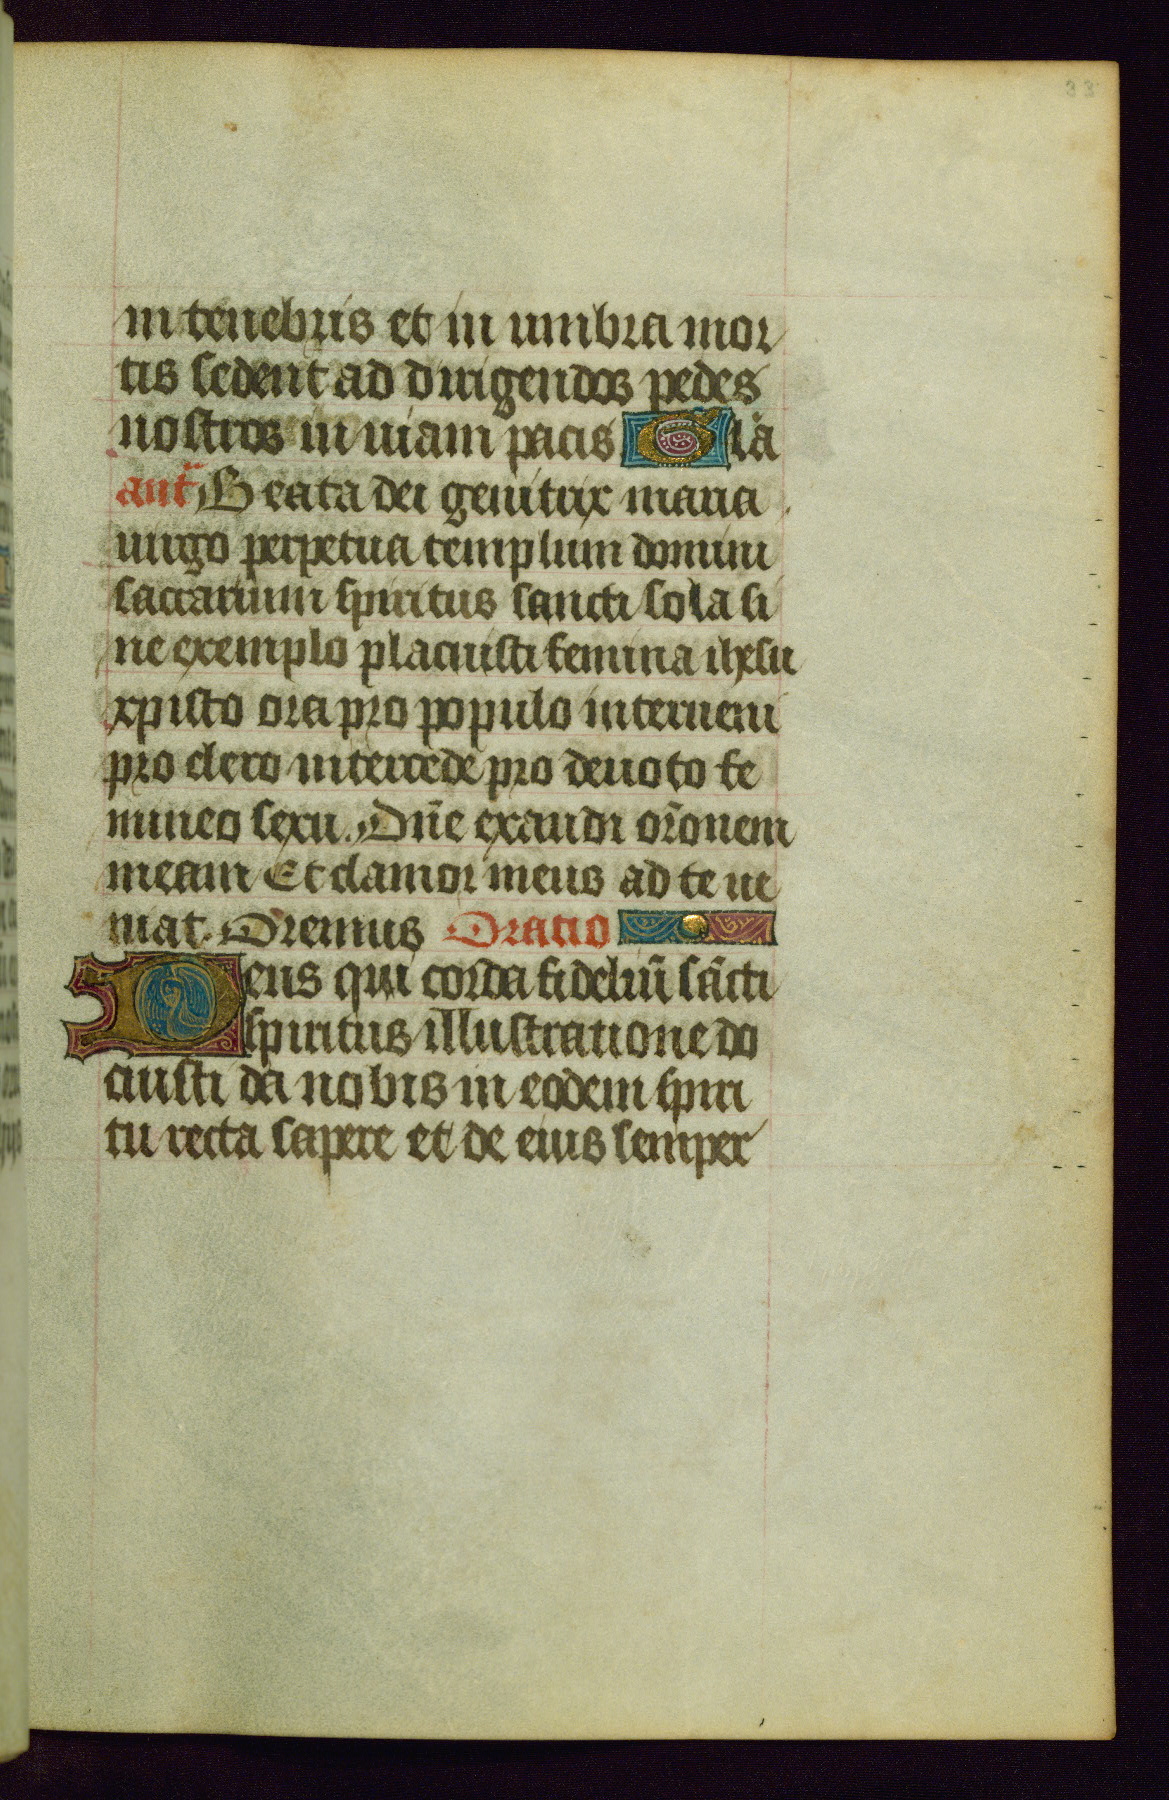 33
in tenebris et in umbra mor
tis sedent ad dirigendos pedes
nostros in uiam pacis Gla
ant̃ Beata dei genitrix maria
uirgo perpetua templum domini
sacrarium spiritus sancti sola si
ne exemplo placuisti femina ihesu
xpisto ora pro populo interueni
pro clero intercede pro deuoto fe
mineo sexu. Dñe exaudi or̃onem
meam Et clamor meus ad te ue
niat. Oremus Oratio
Deus qui corda fideliũ sãcti
spiritus illustratione do
cuisti da nobis in eodem spiri
tu recta sapere et de eius semper